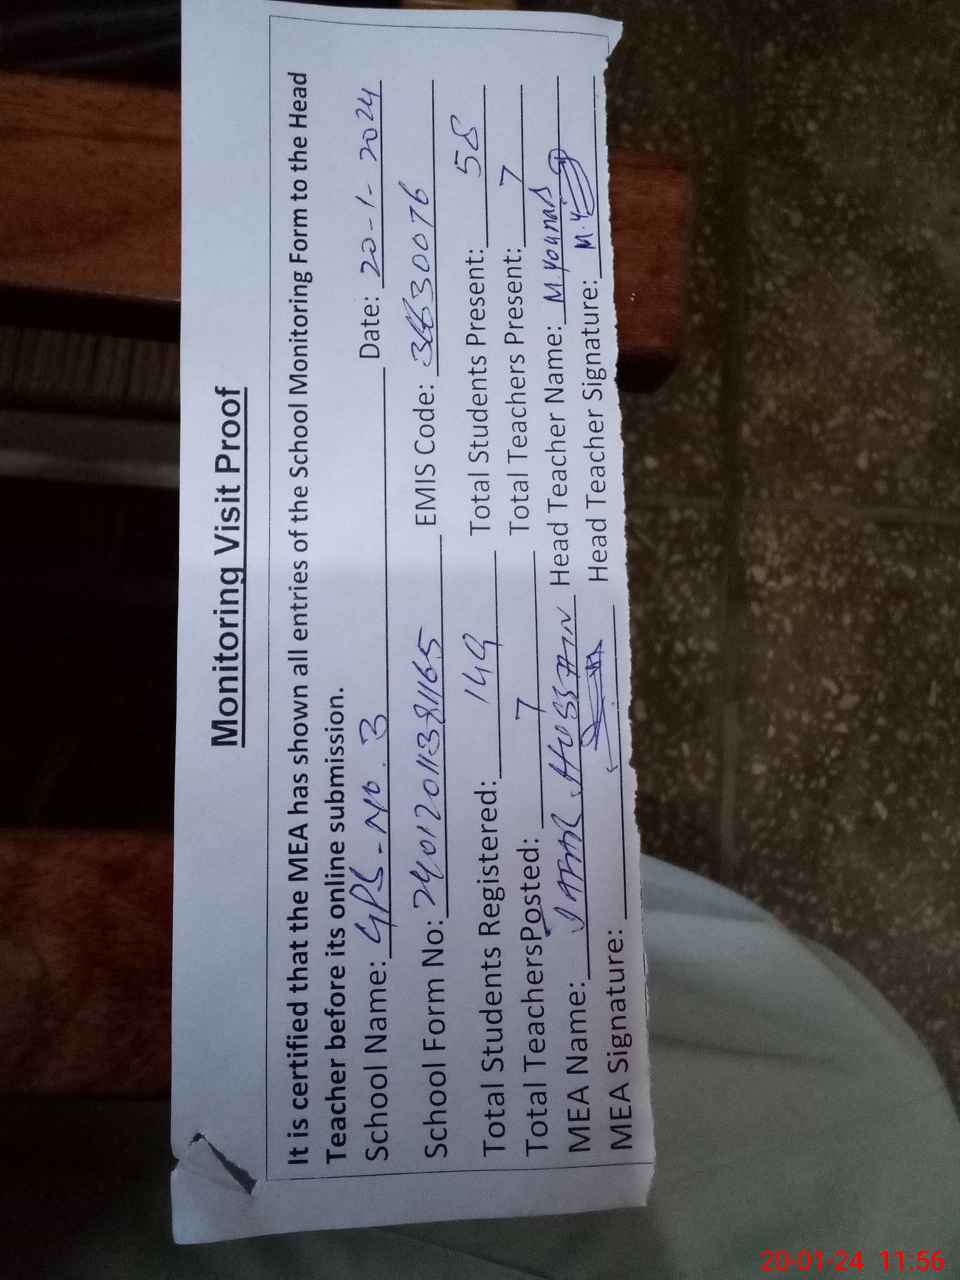 Monitoring Visit Proof
It is certified that the MEA has shown all entries of the School Monitoring Form to the Head
Teacher before its online submission.
School Name: GPS-No. 3 Date: 20-1-2024
School Form No: EMIS Code:
Total Students Registered: 149 Total Students Present: 58
Total TeachersPosted: 7 Total Teachers Present: 7
MEA Name: HUSSAIN Head Teacher Name: M. Younas
MEA Signature: Head Teacher Signature: M.Y
20-01-24 11:56